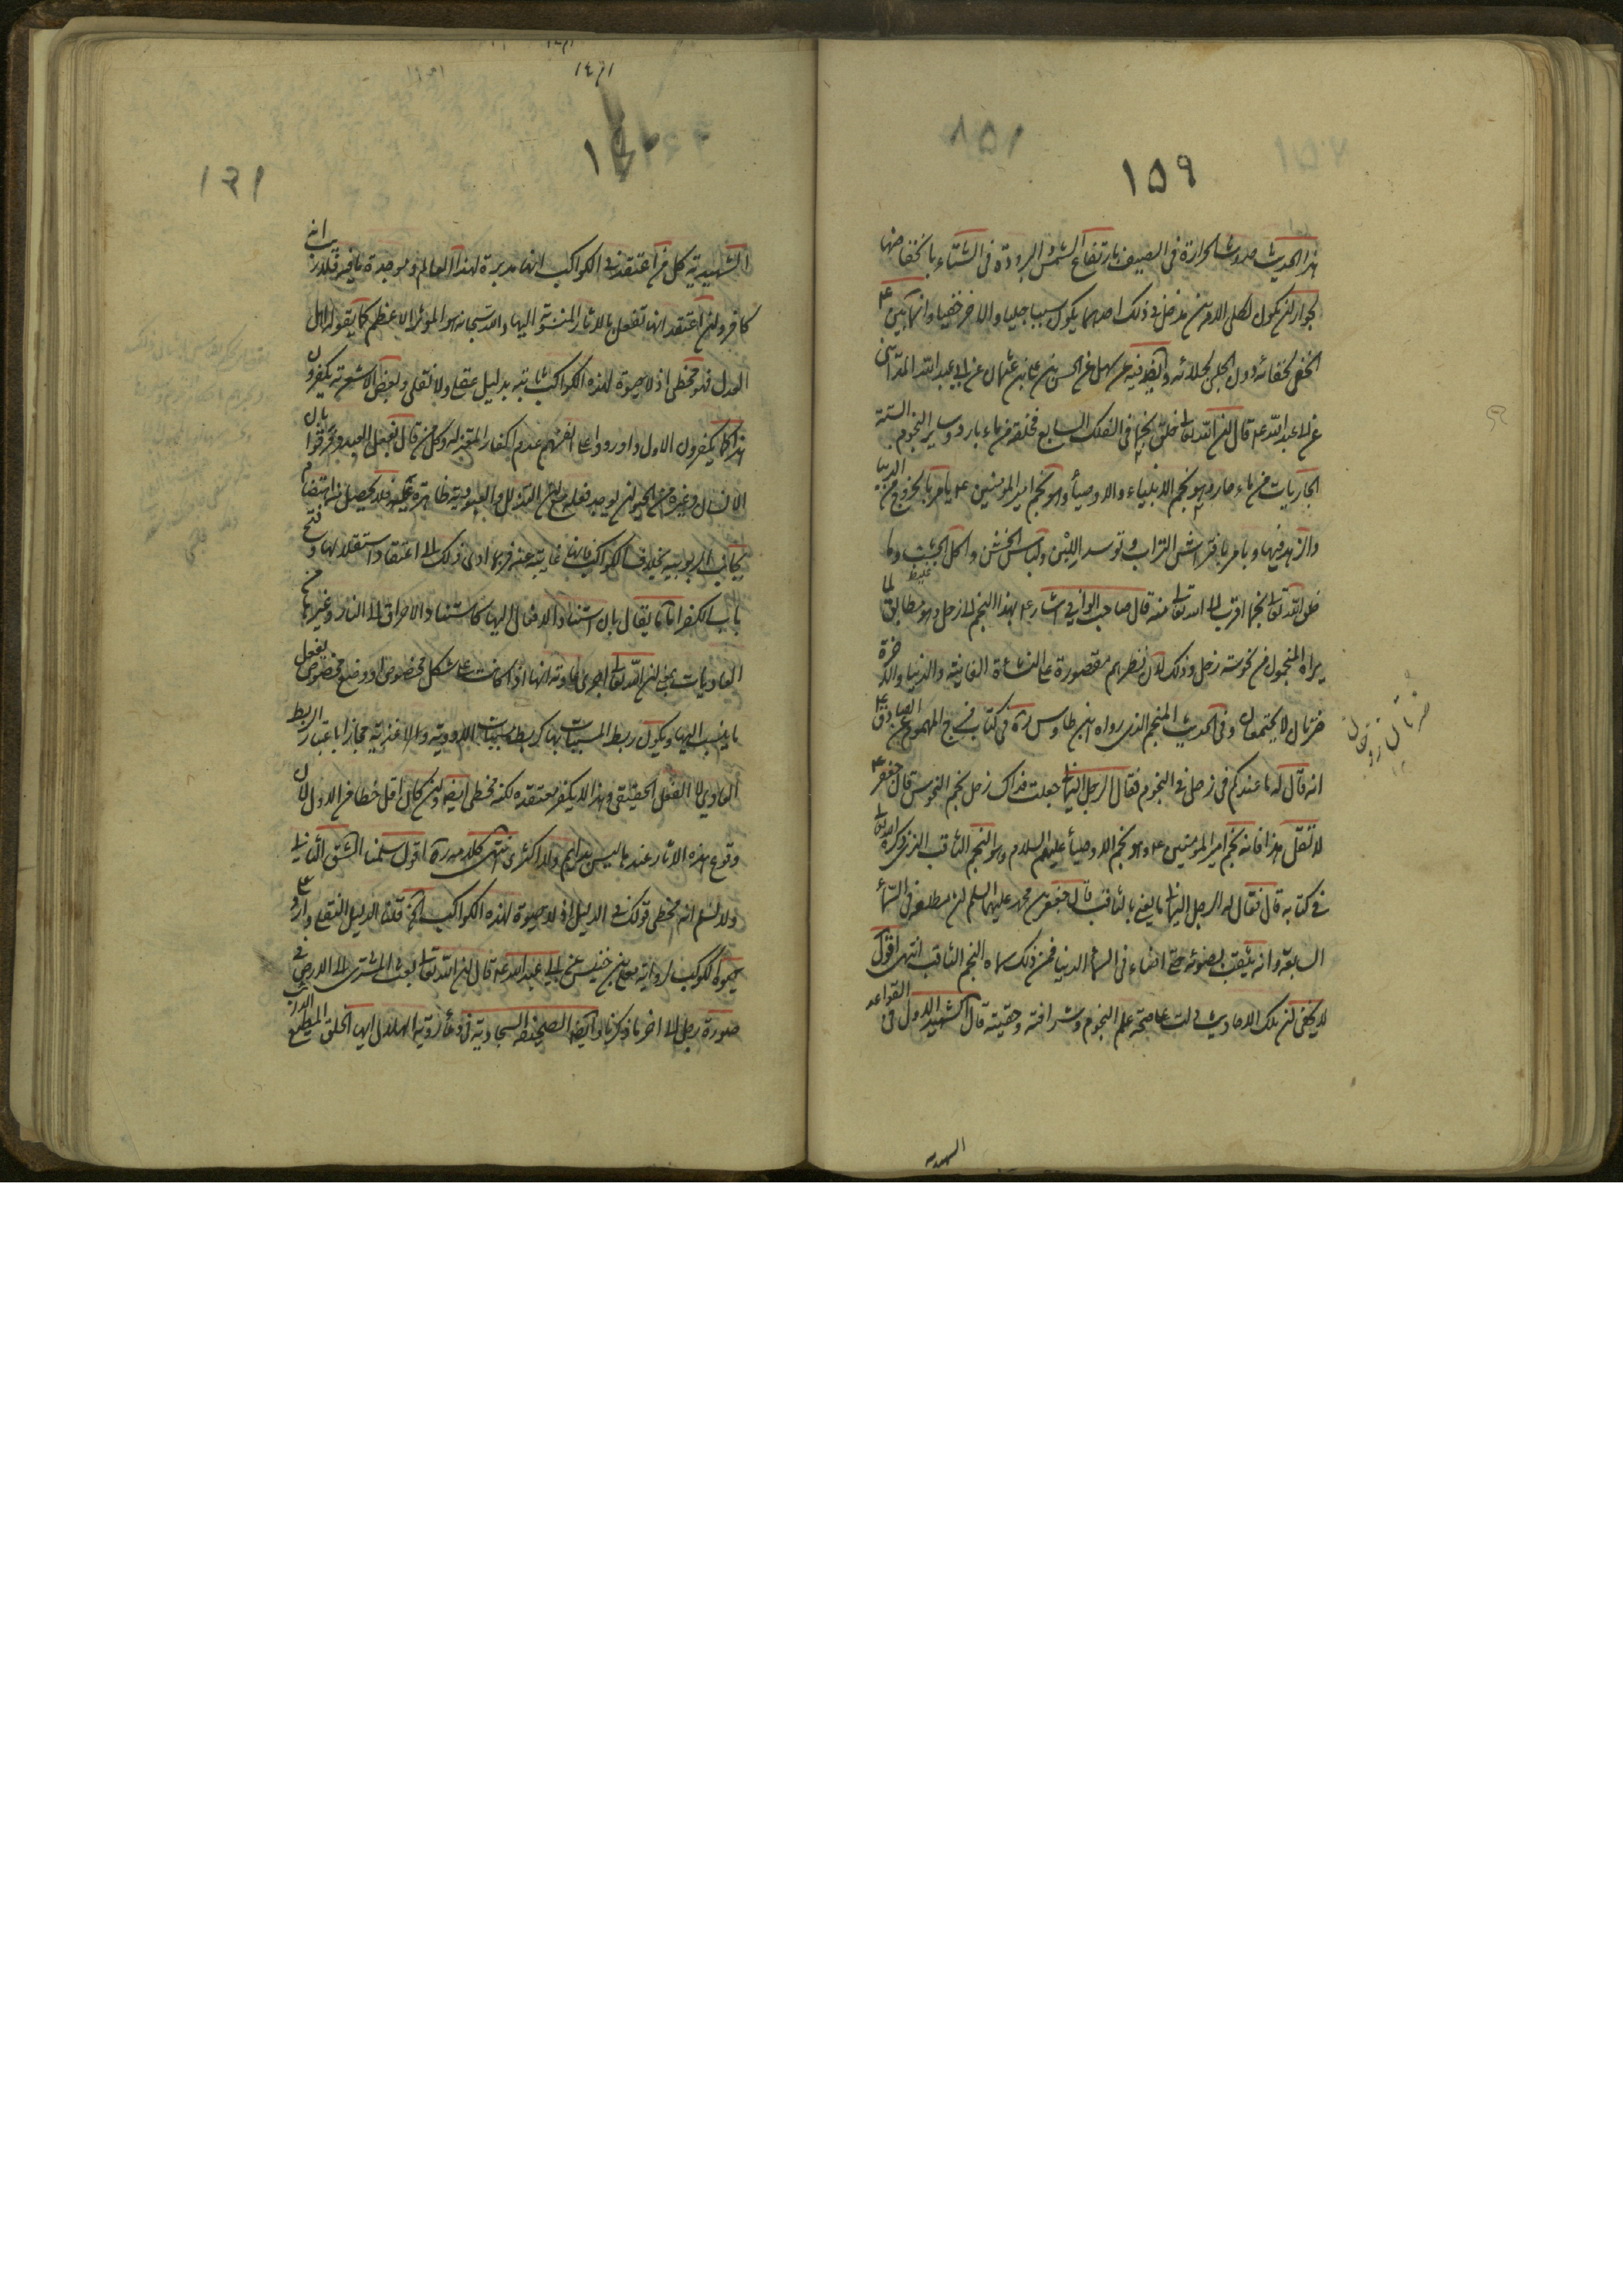 ١٥٩
هذا الحديث حدوث الحرارة في الصيف بارتفاع الشمس البرودة في الشتاء بانخفاضها
لجواز ان يكون لكلى الامرين مدخل في ذلك احدهما يكون سببا جليا والاخر خفيا وانما بين ع
الخفي لخفائه دون الجلي لجلائه وايضا فيه عن سهل عن الحسن بن علي بن عثمان عن ابي عبد الله المدائني
عن ابي عبد الله ع قال ان الله تعالى خلق نجما في الفلك السابع فخلقه من ماء بارد وساير النجوم الستة
الجاريات من ماء حار وهو نجم الانبياء والاوصياء وهو نجم امير المؤمنين ع يامر بالخروج من الدنيا
والزهد فيها ويامر بافتراش التراب وتوسد اللبن ولباس الخشن واكل الجشب وما
خلق الله تعالى نجما اقرب الى الله تعالى منه قال صاحب الوافي اشار ع بهذا النجم الى زحل وهو مطابق لما
يراه المنجمون من نحوسة زحل وذلك لان نظرهم مقصورة على النشاة الفانية والدنيا والاخرة
ضرتان لا يجتمعان وفي الحديث المنجم الذي رواه ابن طاوس ره في كتاب فرج المهموم عن الصادق ع
انه قال له ما عندكم في زحل في النجوم فقال الرجل اليماني جعلت فداك زحل نجم النحوس قال جعفر ع
لا تقل هذا فانه نجم امير المؤمنين ع وهو نجم الاوصياء عليهم السلام وهو النجم الثاقب الذي ذكره الله تعالى
في كتابه قال فقال له الرجل اليماني ما يعني بالثاقب قال جعفر بن محمد عليهما السلم ان مطلعه في السماء
السابعة وانه يثقب بضوئه حتى اضاء في السماء الدنيا فمن ذلك سماه النجم الثاقب انتهى اقول
لا يخفى ان تلك الاحاديث دلت على صحة علم النجوم وشرافته وحقيته قال الشهيد الاول في القواعد
ضرتان
١٦١
الشهيدية كل من اعتقد في الكواكب انها مدبرة لهذا العالم وموجدة ما فيه فلا ريب انه
كافر وان اعتقد انها تفعل الاثار المنسوبة اليها والله سبحانه هو المؤثر الاعظم كما يقوله اهل
العدل فهو مخطي اذ لا حيوة لهذه الكواكب ثابتة بدليل عقلي ولا نقلي وبعض الاشعرية يكفرون
هذا كما يكفرون الاول واوردوا على انفسهم عدم اكفار المعتزلة وكل من قال بفعل العبد وفرقوا بان
الانسان وغيره من الحيوان يوجد فعله مع ان التذلل والعبودية ظاهرة عليه فلا يحصل منه اهتضام
لجانب الربوبية بخلاف الكواكب فانها غايبة عنه فربما ادى ذلك الى اعتقاد استقلالها وفتح
باب الكفر اما ما يقال بان استناد الافعال اليها كاستناد الاحراق الى النار وغيرها من
العاديات بمعنى ان الله تعالى اجرى عادته انها اذا كانت على شكل مخصوص او وضع مخصوص يفعل
ما ينسب اليها ويكون ربط المسببات بها كربط مسببات الادوية والاغذية مجازا باعتبار الربط
العادي لا الفعل الحقيقي فهذا لا يكفر معتقده لكنه مخطي ايضا وان كان اقل خطا من الاول لان
وقوع هذه الاثار عندها ليس بدايم ولا اكثري انتهى كلامه ره اقول سلمنا الشق الثاني
ولا نسلم انه مخطي قولك في الدليل اذ لا حيوة لهذه الكواكب الخ قلنا الدليل النقلي وارد على
حيوة الكوكب لرواية معلى بن خنيس عن ابي عبد الله ع قال ان الله تعالى بعث المشتري الى الارض في
صورة رجل الى اخر ما ذكرنا وايضا الصحيفة السجادية في دعاء رؤية الهلال ايها الخلق المطيع الدائب